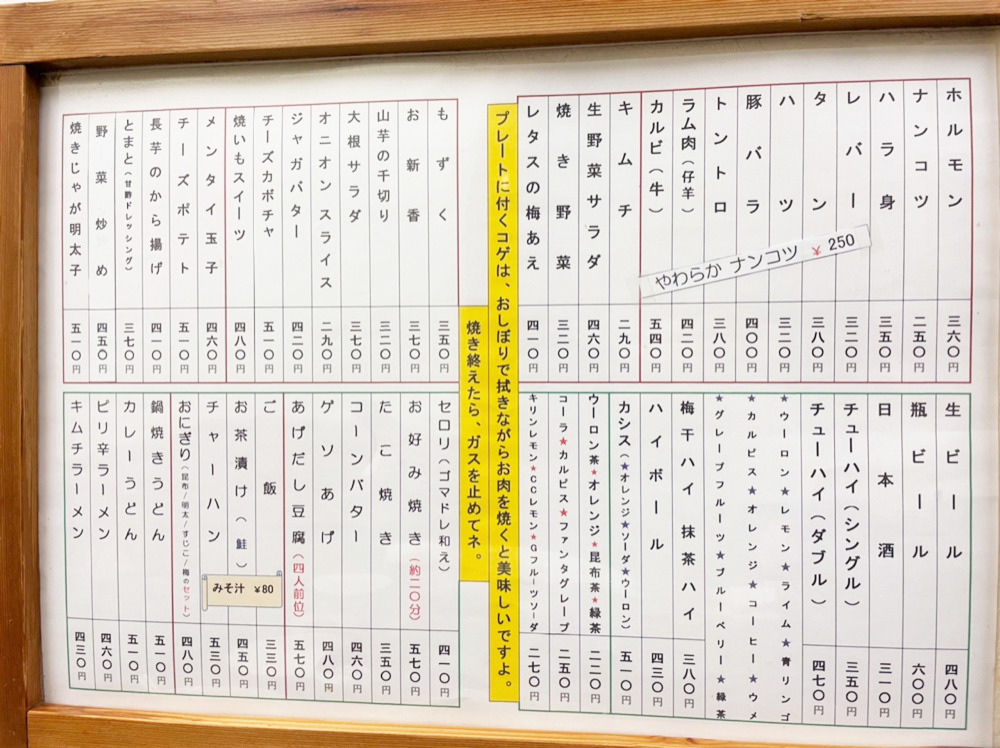 ホルモン 三六〇円
ナンコツ 二五〇円
ハラ身 三五〇円
レバー 三二〇円
タン 三八〇円
ハツ 三二〇円
豚バラ 四〇〇円
トントロ 三八〇円
ラム肉(仔羊) 四二〇円
カルビ(牛) 五四〇円
やわらか ナンコツ ¥250
キムチ 二九〇円
生野菜サラダ 四六〇円
焼き野菜 三二〇円
レタスの梅あえ 四一〇円
生ビール 四八〇円
瓶ビール 六〇〇円
日本酒 三一〇円
チューハイ(シングル) 三五〇円
チューハイ(ダブル) 四七〇円
★ウーロン★レモン★ライム★青リンゴ
★カルピス★オレンジ★コーヒー★ウメ
★グレープフルーツ★ブルーベリー★緑茶
梅干ハイ 抹茶ハイ 三八〇円
ハイボール 四三〇円
カシス(★オレンジ★ソーダ★ウーロン) 五一〇円
ウーロン茶★オレンジ★昆布茶★緑茶 二二〇円
コーラ★カルピス★ファンタグレープ 二五〇円
キリンレモン★CCレモン★Gフルーツソーダ 二七〇円
プレートに付くコゲは、おしぼりで拭きながらお肉を焼くと美味しいですよ。
焼き終えたら、ガスを止めてネ。
もずく 三五〇円
お新香 三七〇円
山芋の千切り 三二〇円
大根サラダ 三七〇円
オニオンスライス 二九〇円
ジャガバター 四二〇円
チーズカボチャ 五一〇円
焼いもスイーツ 四八〇円
メンタイ玉子 四六〇円
チーズポテト 五一〇円
長芋のから揚げ 四一〇円
とまと(甘酢ドレッシング) 三七〇円
野菜炒め 四五〇円
焼きじゃが明太子 五一〇円
セロリ(ゴマドレ和え) 四一〇円
お好み焼き(約二〇分) 五七〇円
たこ焼き 三五〇円
コーンバター 四六〇円
ゲソあげ 四八〇円
あげだし豆腐(四人前位) 五七〇円
ご飯 三三〇円
みそ汁 ¥80
お茶漬け(鮭) 四五〇円
チャーハン 五三〇円
おにぎり(昆布/明太/すじこ/梅のセット) 四八〇円
鍋焼きうどん 五一〇円
カレーうどん 五一〇円
ピリ辛ラーメン 四六〇円
キムチラーメン 四三〇円